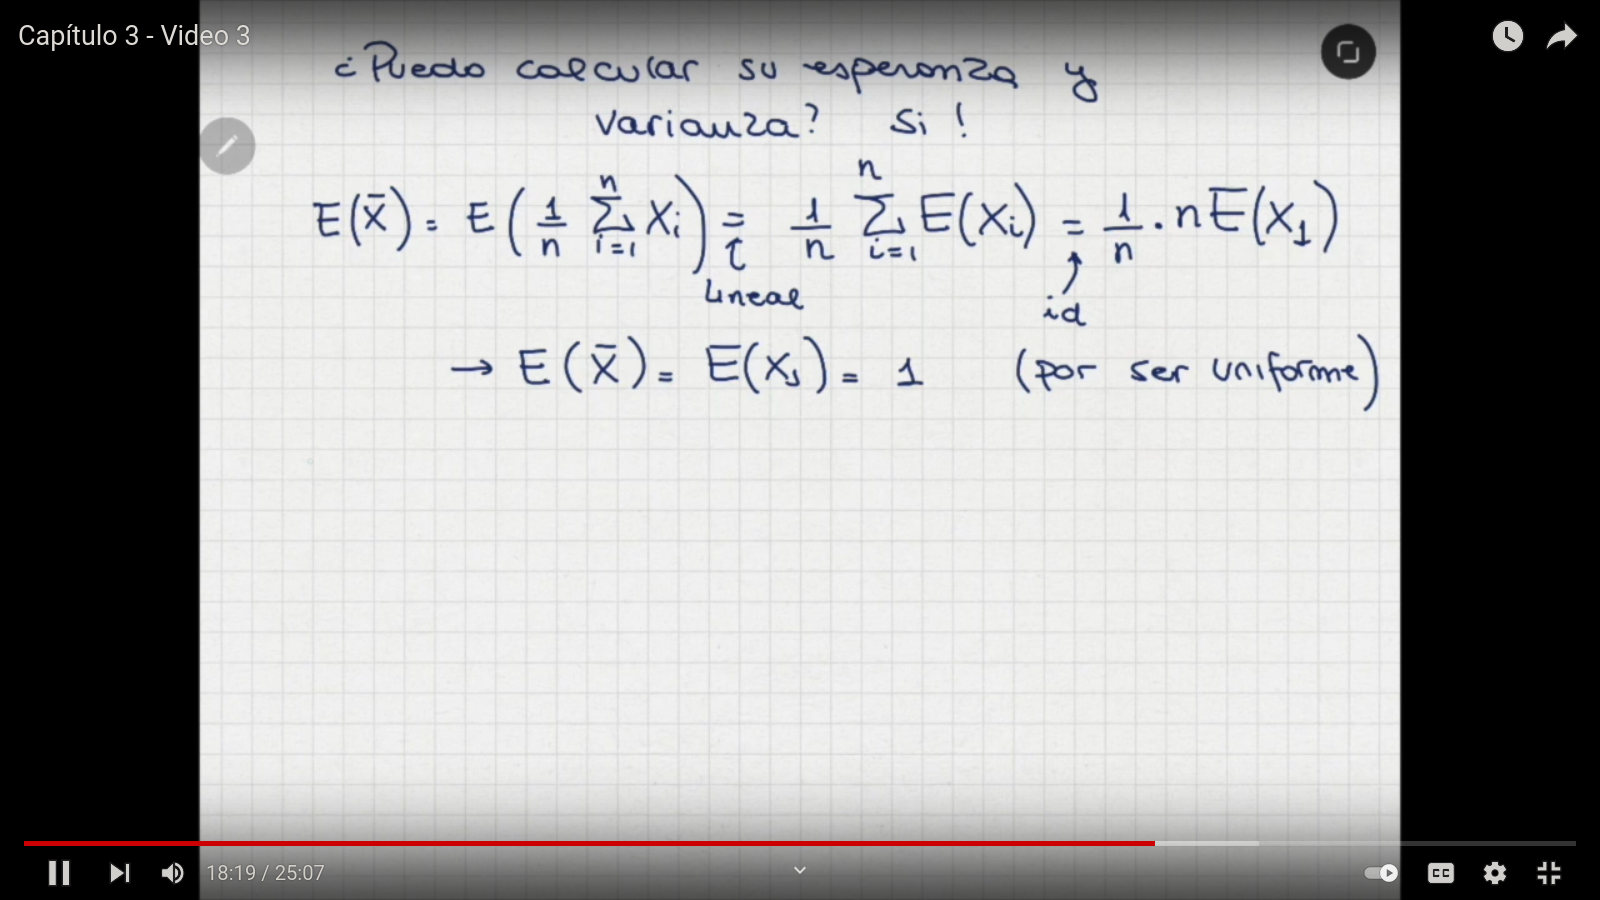 Capítulo 3 - Video 3
¿Puedo calcular su esperanza y
varianza? Si !
E(X̄) = E( 1/n ∑ⁿᵢ₌₁ Xᵢ ) = 1/n ∑ⁿᵢ₌₁ E(Xᵢ) = 1/n . n E(X₁)
Lineal id
→ E(X̄) = E(X₁) = 1 (por ser uniforme)
18:19 / 25:07
CC